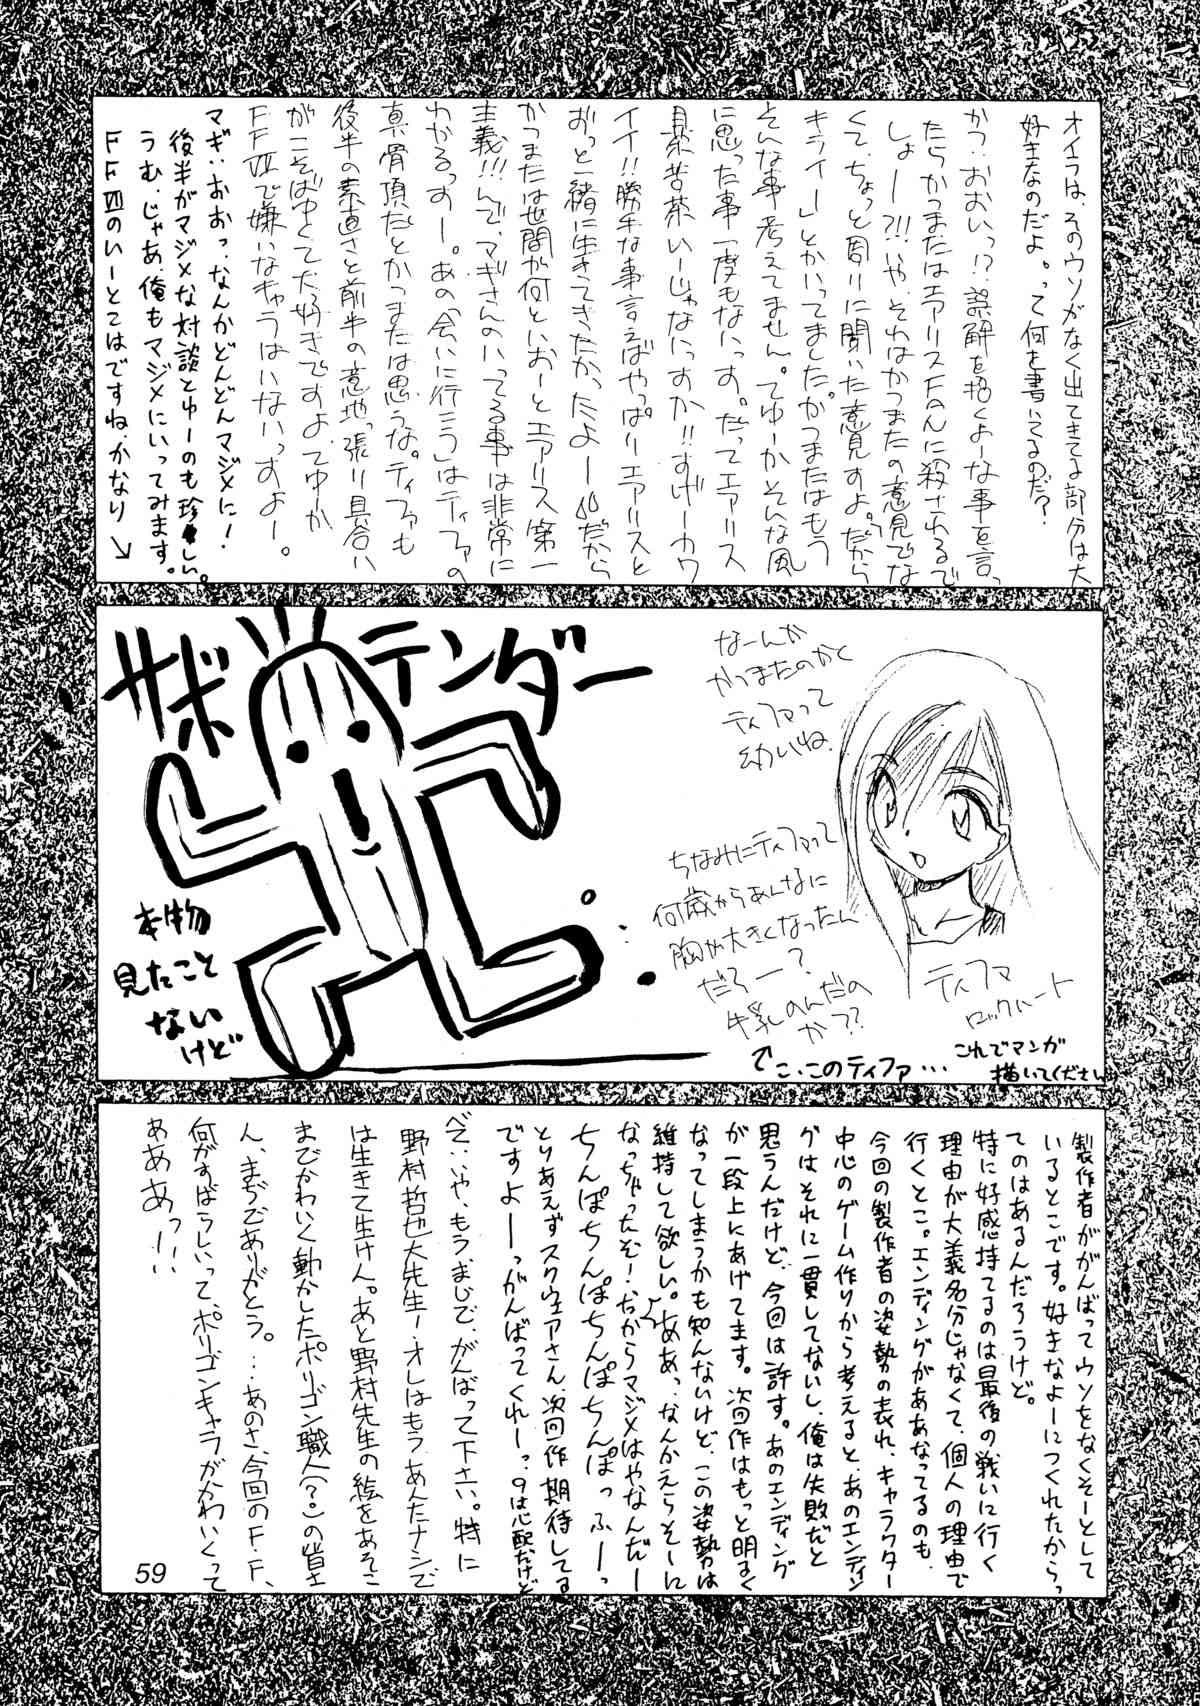 オイラは、そのウソがなく出てきてる部分は大
好きなのだよ。って何を書いてるのだ?
かつ:おおいっ!?誤解を招くよーな事を言っ
たらかつまたはエアリスFanに殺されるで
しょー?!!いや、それはかつまたの意見でな
くて、ちょっと周りに聞いた意見すよ。だから
キライー」とかいってました。かつまたはもう
そんな事考えてません。てゆーかそんな風
に思った事一度もないっす。だってエアリス
最
イイ!!勝手な事言えばやっぱりエアリスと
おっと一緒に生きてきたかったよー だから
かつまたは世間が何といおーとエアリス第一
主義!!!んで、マギさんのいってる事は非常に
わかるっすー。あの「会いに行こう」はティファの
真骨頂だとかつまたは思うな。ティファも
後半の素直さと前半の意地っ張り具合い
がこそばゆくて大好きですよ。てゆーか
FFⅦで嫌いなキャラはいないっすよー。
マギ:おおっ、なんかどんどんマジメに!
後半がマジメな対談とゆーのも珍しい。
うむ、じゃあ、俺もマジメにいってみます。
FFⅦのいーとこはですね、かなり↓
サボテンダー
本物
見たこと
ないけど
なーんか
かつまたのかく
ティファって
幼いね
ちなみにティファって
何歳からあんなに
胸が大きくなったん
だろー?
牛乳のんだの
か??
ティファ
ロックハート
こ、このティファ…
これでマンガ
描いてください
製作者ががんばってウソをなくそーとして
いるとこです。好きなよーにつくれたからっ
てのはあるんだろうけど。
特に好感持てるのは最後の戦いに行く
理由が大義名分じゃなくて、個人の理由で
行くとこ。エンディングがああなってるのも、
今回の製作者の姿勢の表れ、キャラクター
中心のゲーム作りから考えると、あのエンディン
グはそれに一貫してないし、俺は失敗だと
思うんだけど、今回は許す。あのエンディング
が一段上にあげてます。次回作はもっと明るく
なってしまうかも知んないけど、この姿勢は
維持して欲しい。ああっ、なんかえらそーに
なっちゃったぞ!だからマジメはやなんだー
ちんぽちんぽちんぽちんぽっふーっ
とりあえずスクウェアさん、次回作期待してる
ですよーーっがんばってくれーっ?9は心配だけど
べ:いや、もう、まじで、がんばって下さい。特に
野村哲也大先生ー、オレはもう、あんたナシで
は生きて生けん。あと野村先生の絵をあそこ
までかわいく動かしたポリゴン職人(?)の皆さ
ん、まぢでありがとう。…あのさ、今回のF.F、
何がすばらしいって、ポリゴンキャラがかわいくって
ああああっ!!
59